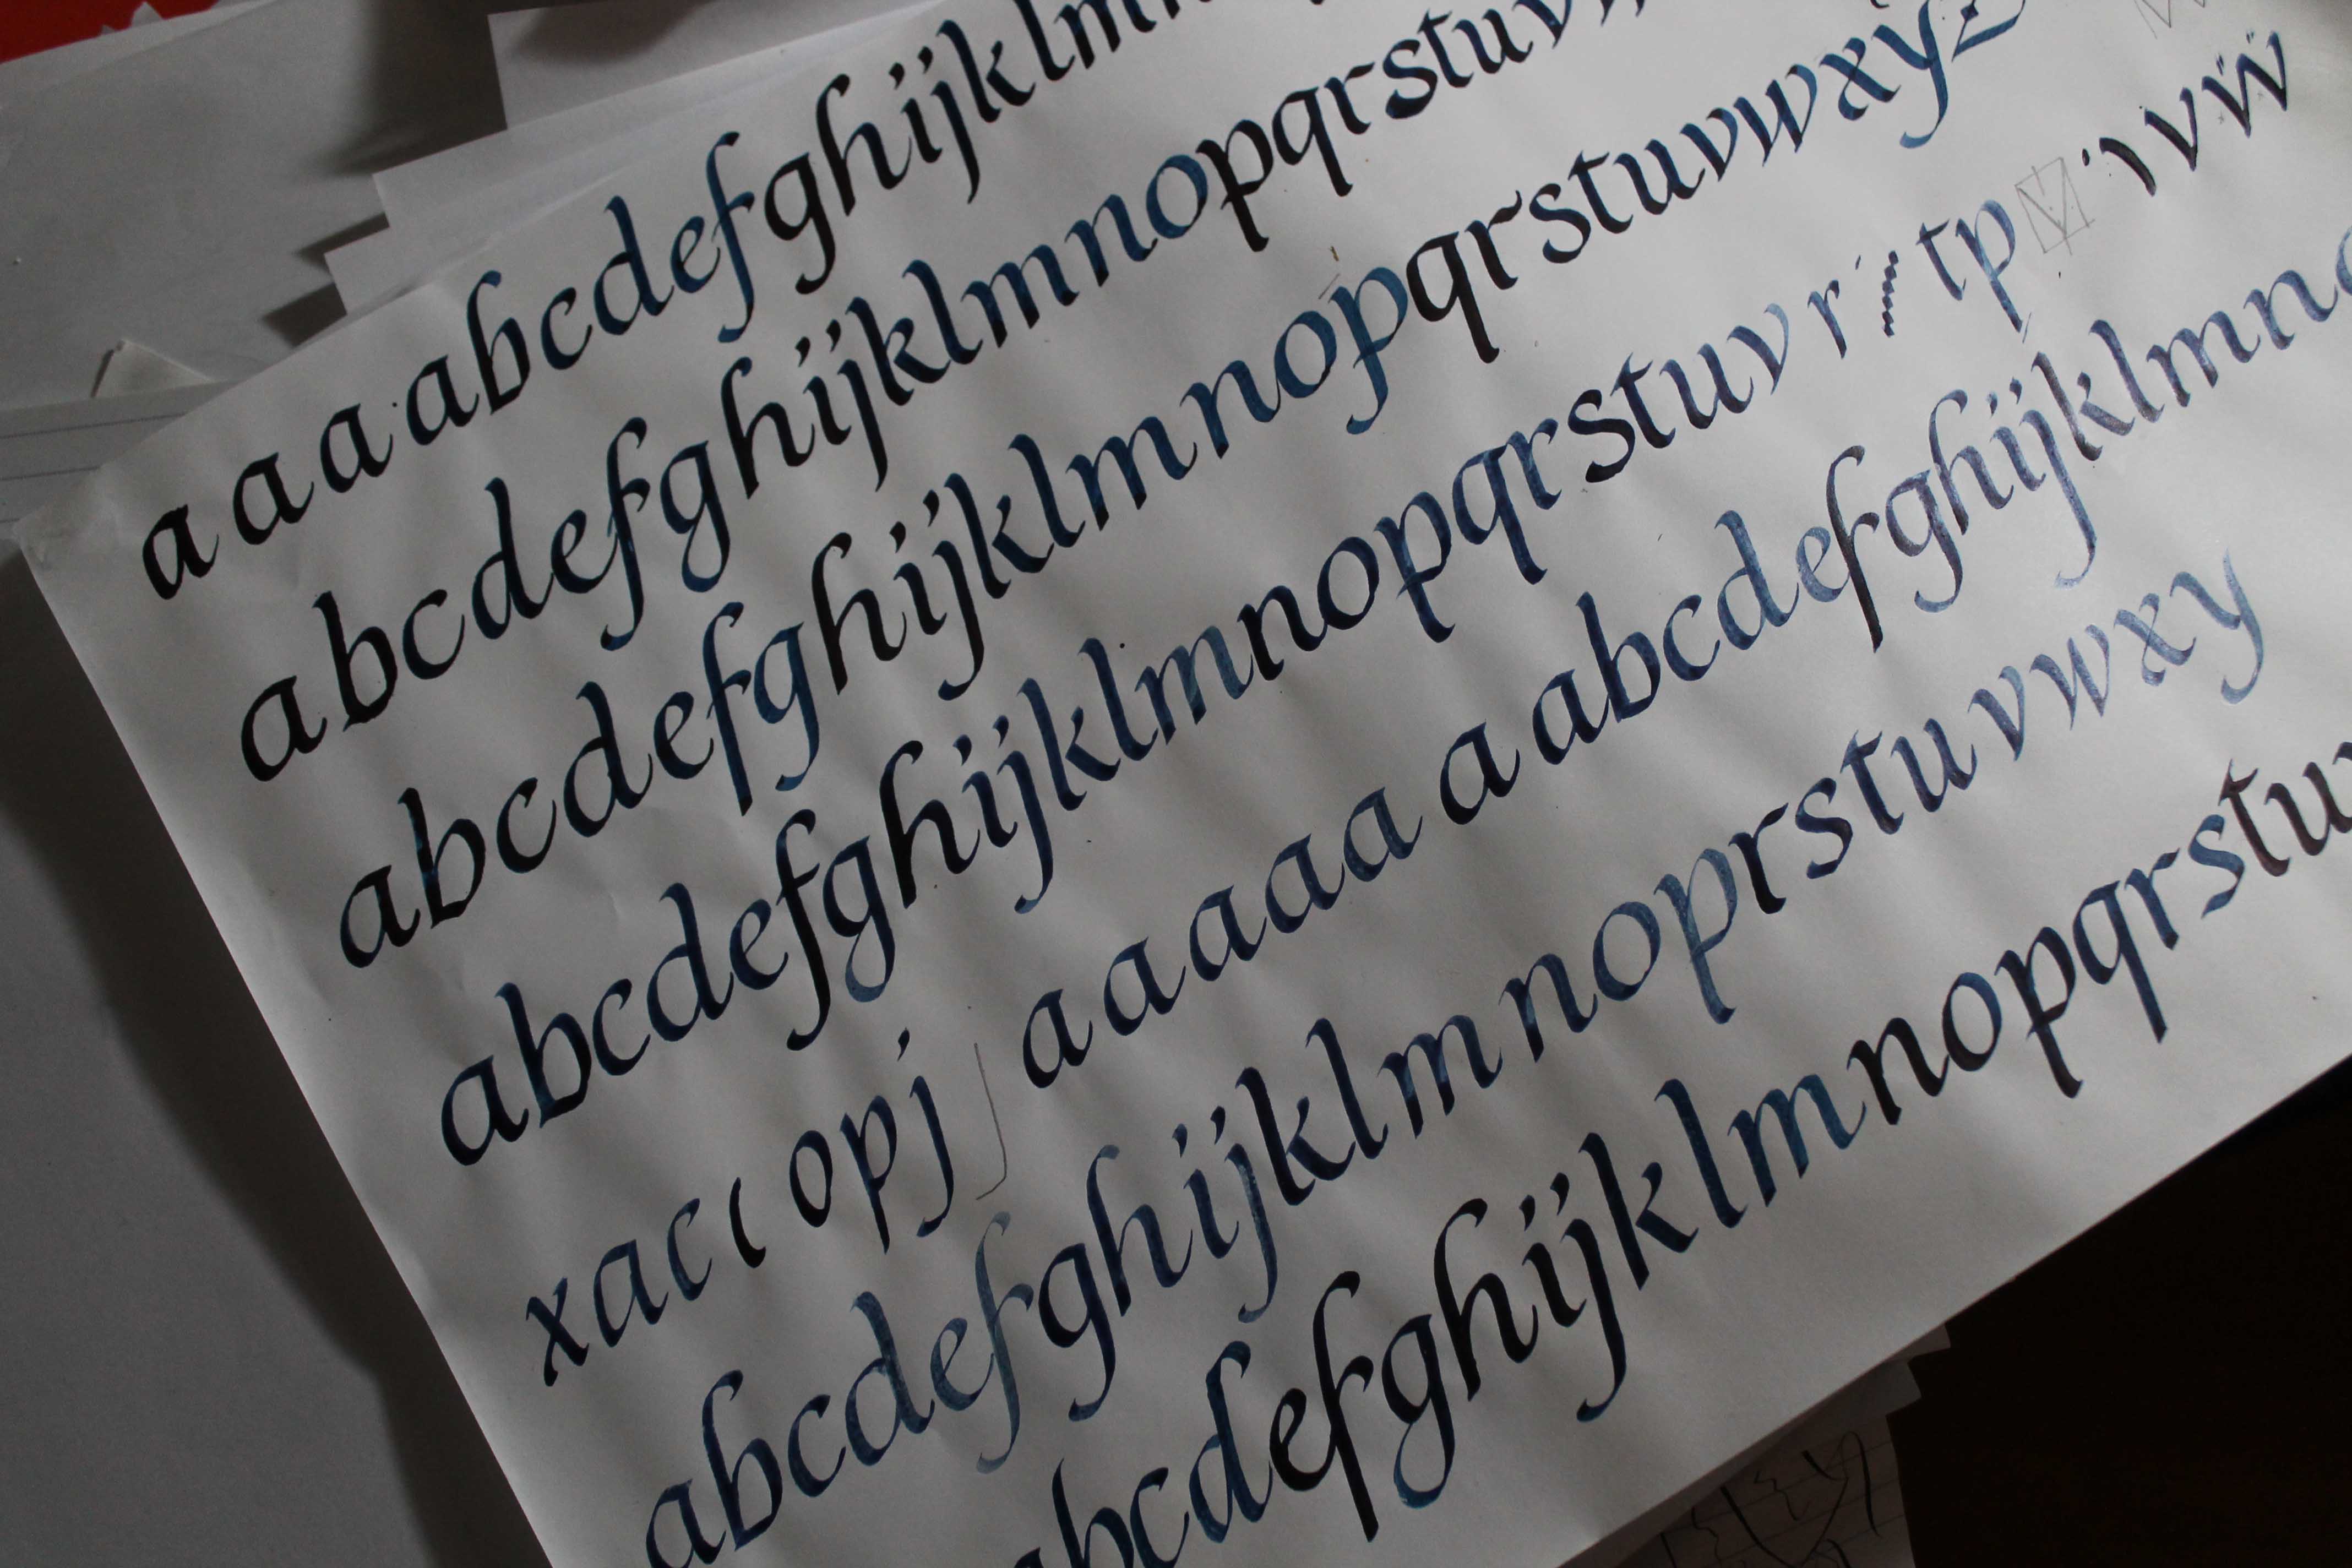 a a a abcdefghijklm
abcdefghijklmnopqrstuv
abcdefghijklmnopqrstuvwxyz
abcdefghijklmnopqrstuv r tp v v w
xac opj aaaaa a abcdefghijklmno
abcdefghijklm noprstu vwxy
abcdefghijklmnopqrstu